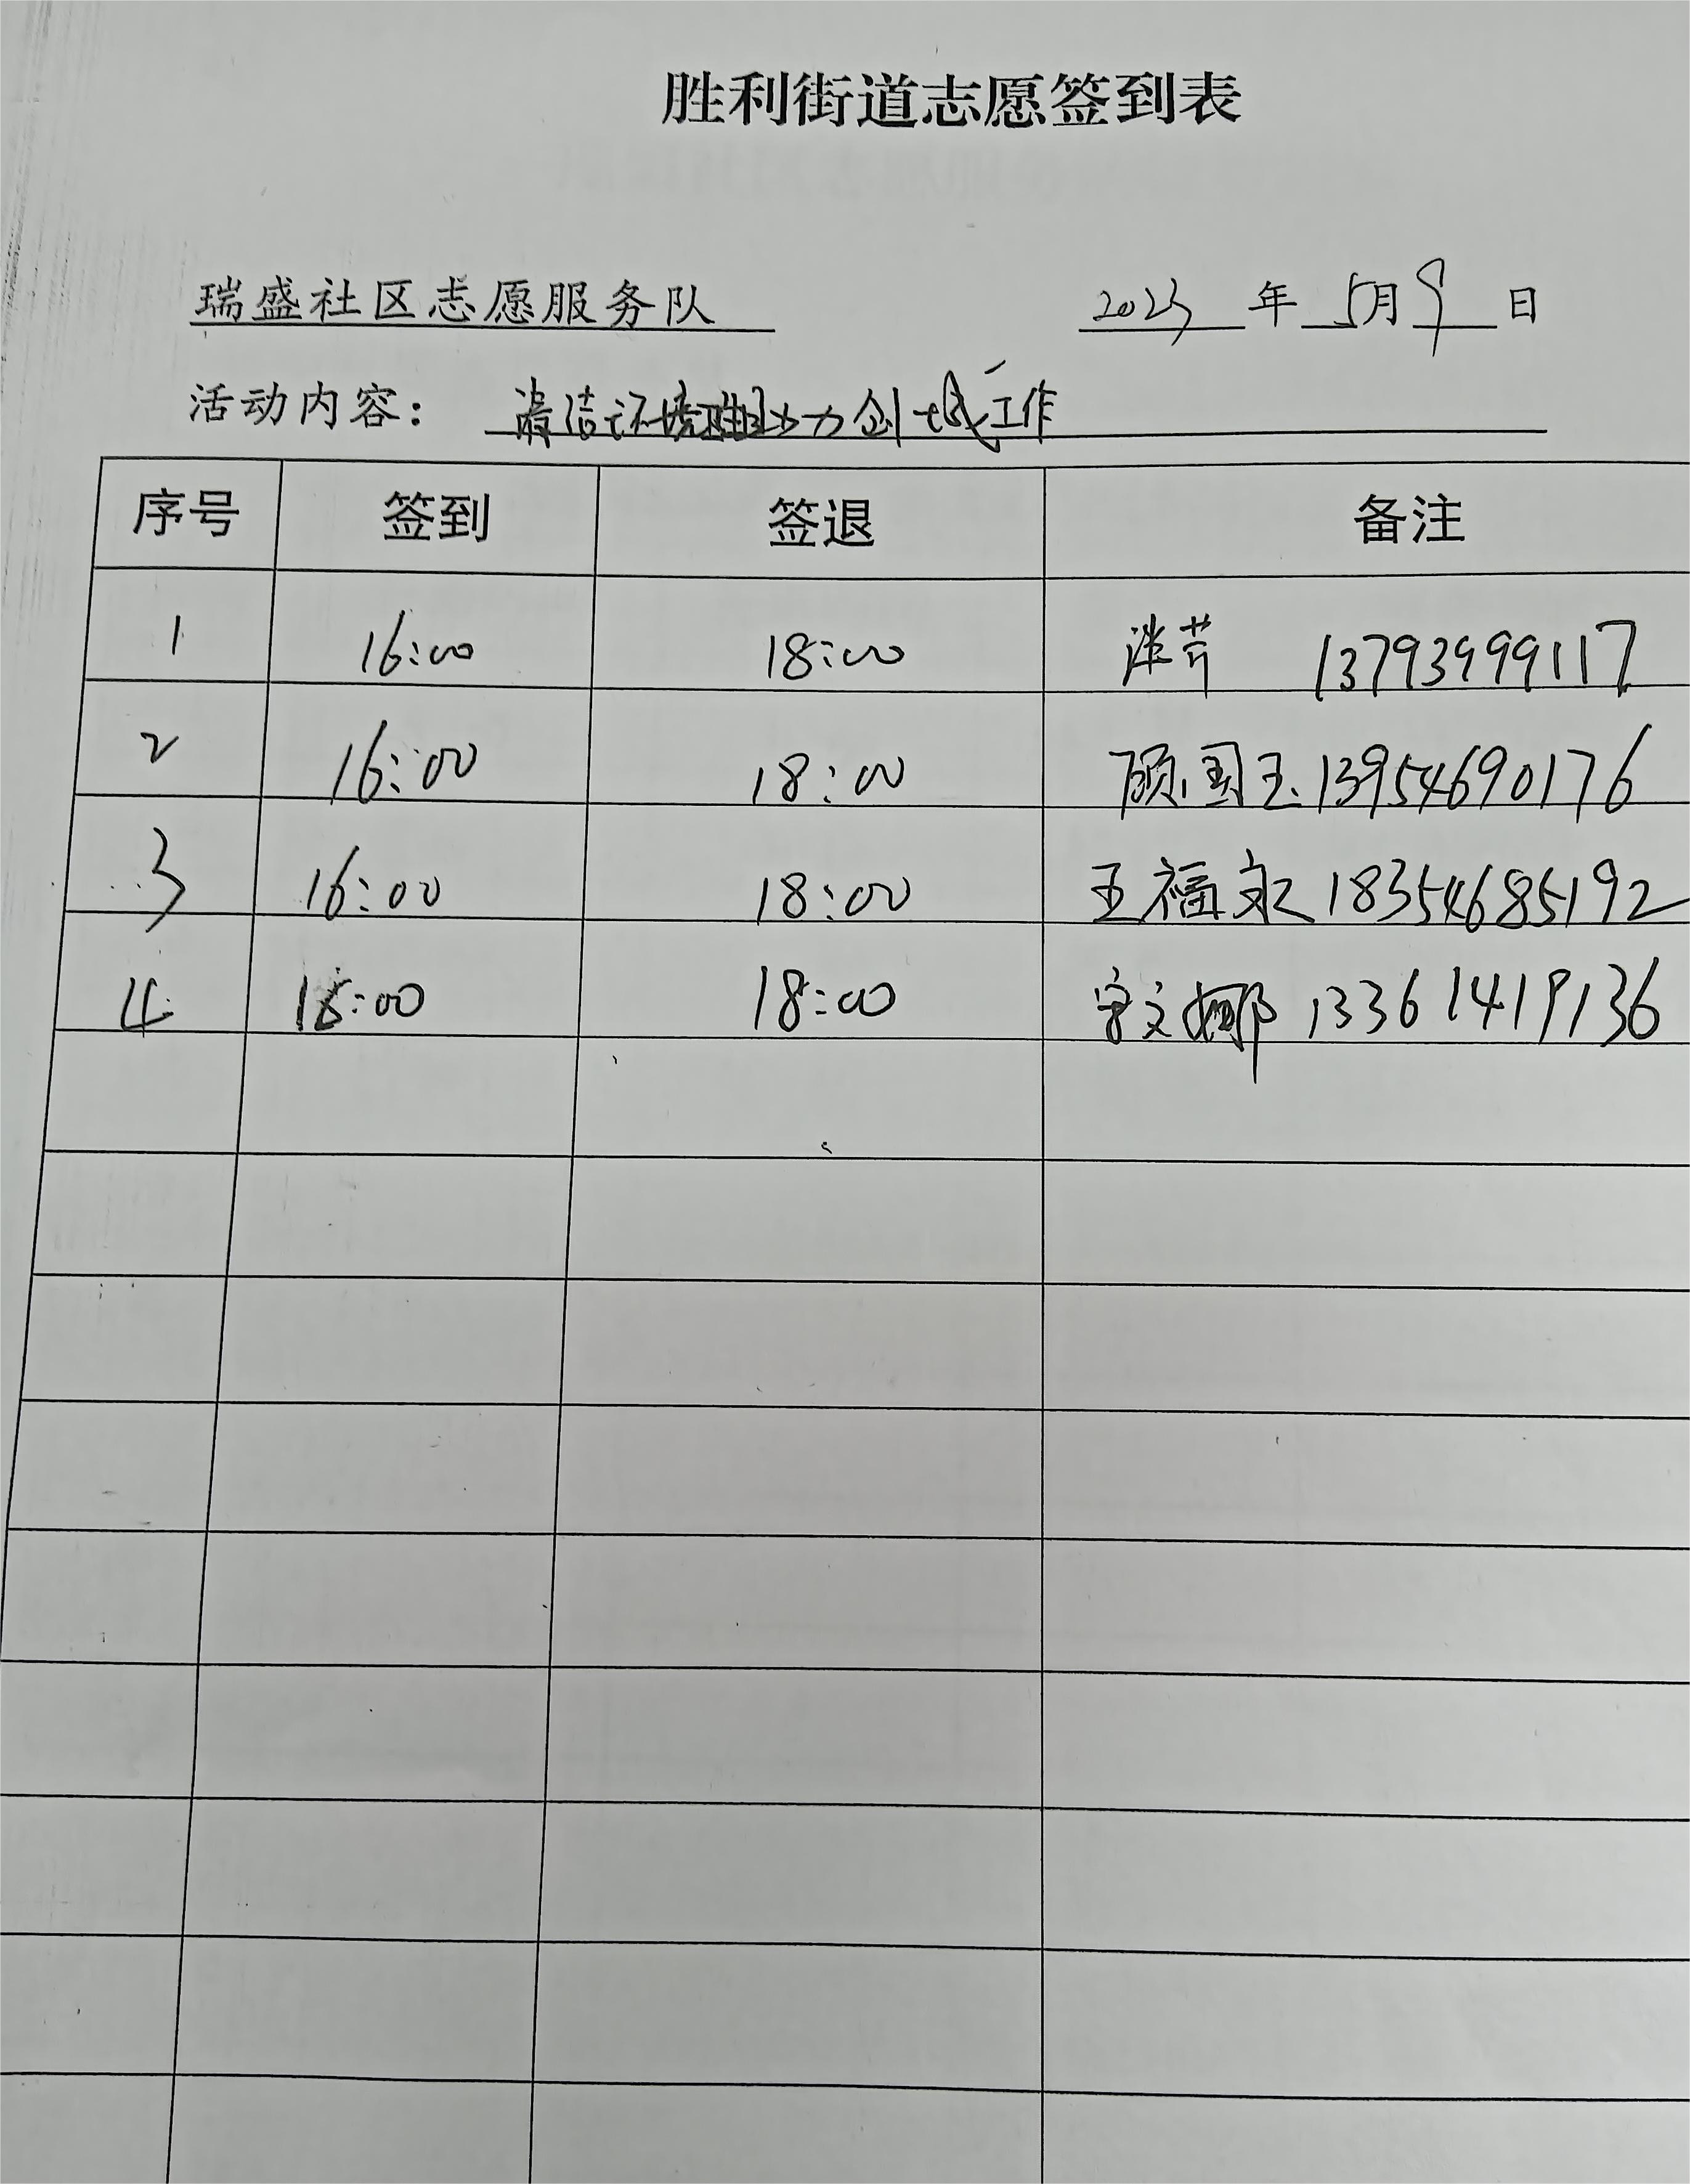 胜利街道志愿签到表
瑞盛社区志愿服务队 2023 年 5月 9 日
活动内容： 清洁环境 助力创城工作
序号 签到 签退 备注
1 16:00 18:00 13793999117
2 16:00 18:00 顾国玉 13954690176
3 16:00 18:00 王福永 18354685192
4 16:00 18:00 文娜 13361419136